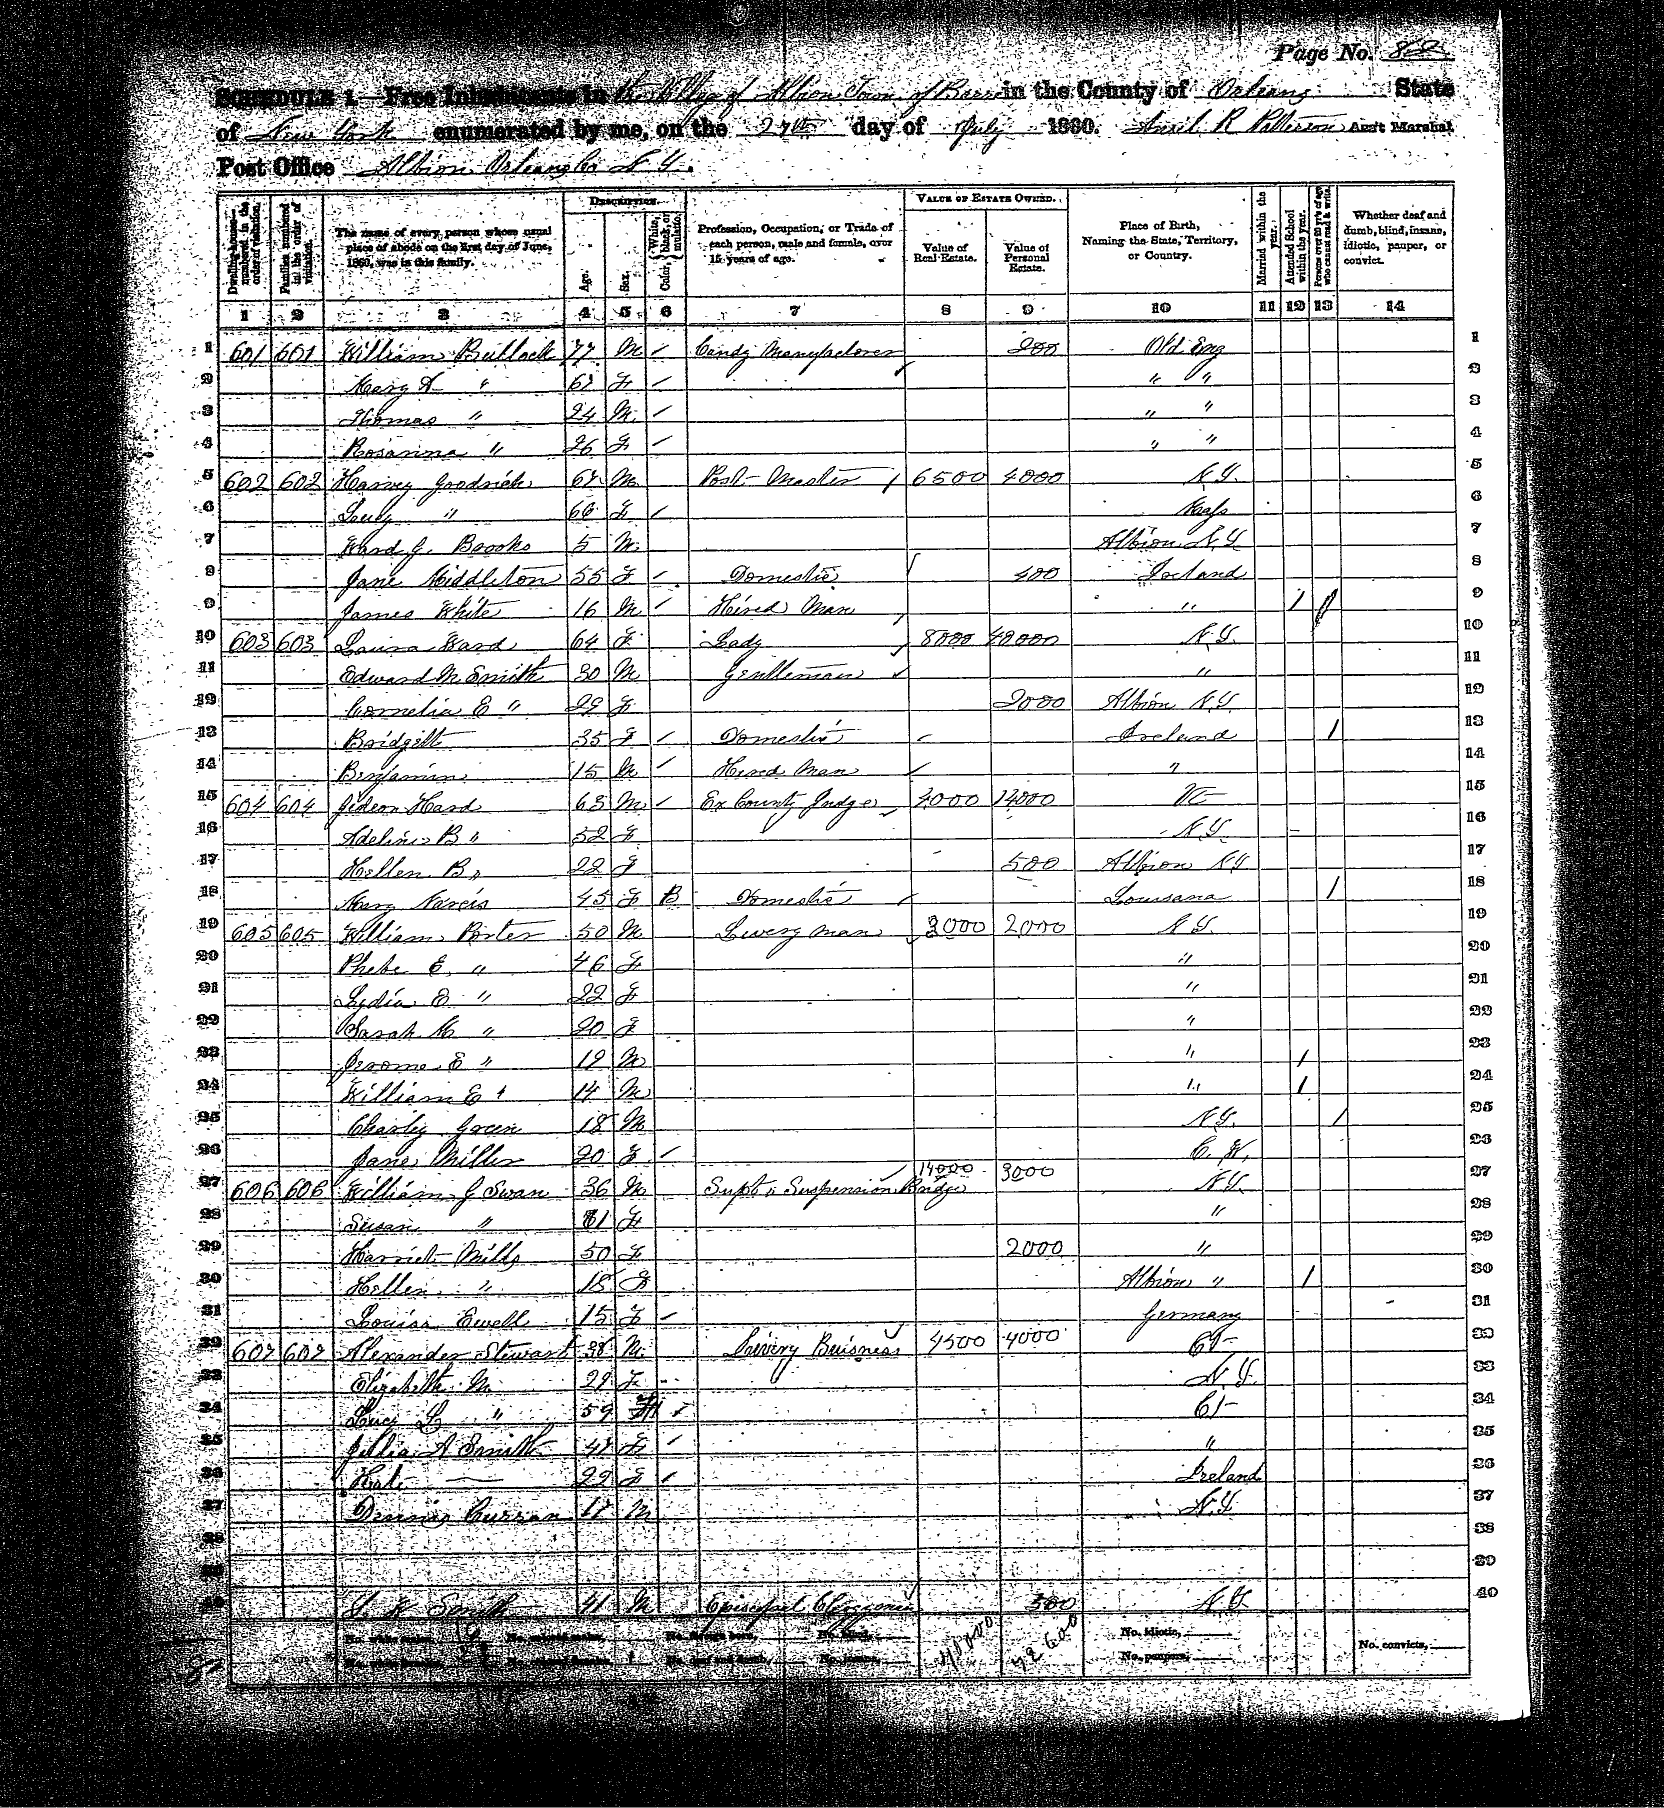 Page No. 82
SCHEDULE 1.—Free Inhabitants in the Village of Albion Town of Barre in the County of Orleans State
of New York enumerated by me, on the 27th day of July 1860. Ansil R Patterson Ass't Marshal
Post Office Albion Orleans Co N. Y.
Dwelling-houses—numbered in the order of visitation.
Families numbered in the order of visitation.
The name of every person whose usual place of abode on the first day of June, 1860, was in this family.
DESCRIPTION.
Age.
Sex.
Color, { White, black, or mulatto.
Profession, Occupation, or Trade of each person, male and female, over 15 years of age.
VALUE OF ESTATE OWNED.
Value of Real Estate.
Value of Personal Estate.
Place of Birth, Naming the State, Territory, or Country.
Married within the year.
Attended School within the year.
Persons over 20 y'rs of age who cannot read & write.
Whether deaf and dumb, blind, insane, idiotic, pauper, or convict.
1 2 3 4 5 6 7 8 9 10 11 12 13 14
1 601 601 William Bullock 77 M Candy Manufacturer 200 Old Eng 1
2 Mary A " 67 F " " 2
3 Thomas " 24 M " " 3
4 Rosanna " 26 F " " 4
5 602 602 Harvey Goodrich 67 M Post-Master 6500 4000 N Y. 5
6 Lucy " 66 F Mass 6
7 Ward G. Brooks 5 M Albion N.Y 7
8 Jane Middleton 55 F Domestic 400 Ireland 8
9 James White 16 M Hired Man " / / 9
10 603 603 Laura Ward 64 F Lady 8000 40000 N.Y. 10
11 Edward M Smith 30 M Gentleman " 11
12 Cornelia E " 29 F 2000 Albion N.Y. 12
13 Bridgett 35 F Domestic Ireland / 13
14 Benjamin 15 M Hired Man " 14
15 604 604 Gideon Hard 63 M Ex County Judge 4000 12000 Vt 15
16 Adeline B " 52 F N.Y. 16
17 Hellen B " 22 F 500 Albion N Y 17
18 Mary 45 F B Domestic Lousana / 18
19 605 605 William Porter 50 M Livery man 3000 2000 N Y. 19
20 Phebe E. " 46 F " 20
21 Lydia E " 22 F " 21
22 Sarah " 20 F " 22
23 Jerome E " 19 M " / 23
24 William E " 14 M " / 24
25 Charley Green 18 M N.Y. / 25
26 Jane Miller 20 F C. W. 26
27 606 606 William G Swan 36 M Supt. Suspension Bridge 14000 3000 N.Y. 27
28 Susan " 31 F " 28
29 Harriet Mills 50 F 2000 " 29
30 Hellen " 18 F Albion " / 30
31 Louisa Ewell 15 F Germany 31
32 607 607 Alexander Stewart 38 M Livery Buisness 4500 4000 Ct 32
33 Elizabeth M 29 F N.Y. 33
34 Lucy L " 59 F Ct 34
35 Julia A Smith 47 F " 35
36 Kate — 22 F Ireland 36
37 Dennis Curran 17 M N.Y 37
38 38
39 39
40 Smith 41 M Episcopal Clergyman 300 N.Y 40
No. white males, No. colored males, No. foreign born, No. blind, No. idiotic, No. convicts,
No. white females, No. colored females, No. deaf and dumb, No. insane, No. paupers,